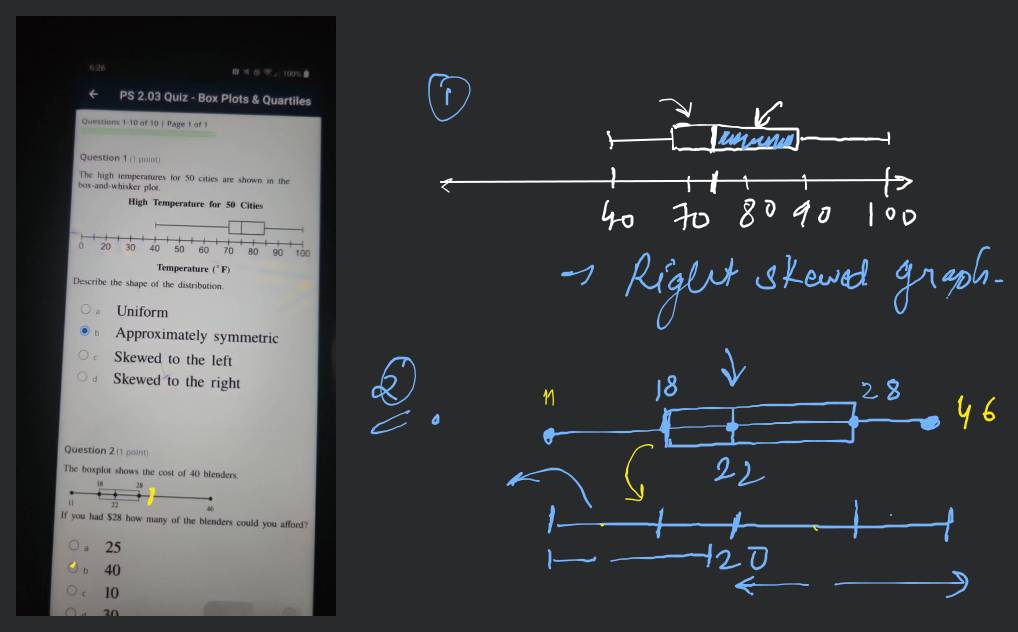 6:26
100%
PS 2.03 Quiz - Box Plots & Quartiles
Questions 1-10 of 10 | Page 1 of 1
Question 1 (1 point)
The high temperatures for 50 cities are shown in the
box-and-whisker plot.
High Temperature for 50 Cities
0 20 30 40 50 60 70 80 90 100
Temperature (°F)
Describe the shape of the distribution.
a Uniform
b Approximately symmetric
c Skewed to the left
d Skewed to the right
Question 2 (1 point)
The boxplot shows the cost of 40 blenders.
18 28
11 22 46
If you had $28 how many of the blenders could you afford?
a 25
b 40
c 10
30
1
40 70 80 90 100
→ Right skewed graph.
2.
11 18 28 46
22
20